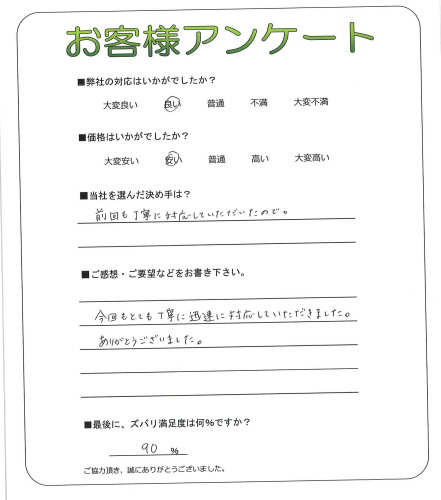 お客様アンケート
■弊社の対応はいかがでしたか？
大変良い 良い 普通 不満 大変不満
■価格はいかがでしたか？
大変安い 安い 普通 高い 大変高い
■当社を選んだ決め手は？
前回も丁寧に対応していただいたので。
■ご感想・ご要望などをお書き下さい。
今回もとても丁寧に迅速に対応していただきました。
ありがとうございました。
■最後に、ズバリ満足度は何％ですか？
90 ％
ご協力頂き、誠にありがとうございました。